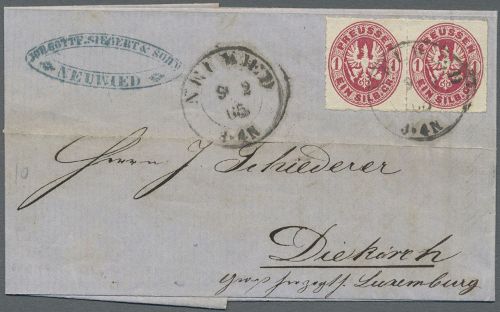 JOH. GOTTF. SIEGERT & SOHN
NEUWIED
NEUWIED
9 2
65
PREUSSEN
1 1
EIN SILB.GR.
PREUSSEN
1 1
EIN SILB.GR.
Herrn J. Schiederer
Diekirch
Grossherzogth. Luxemburg
10